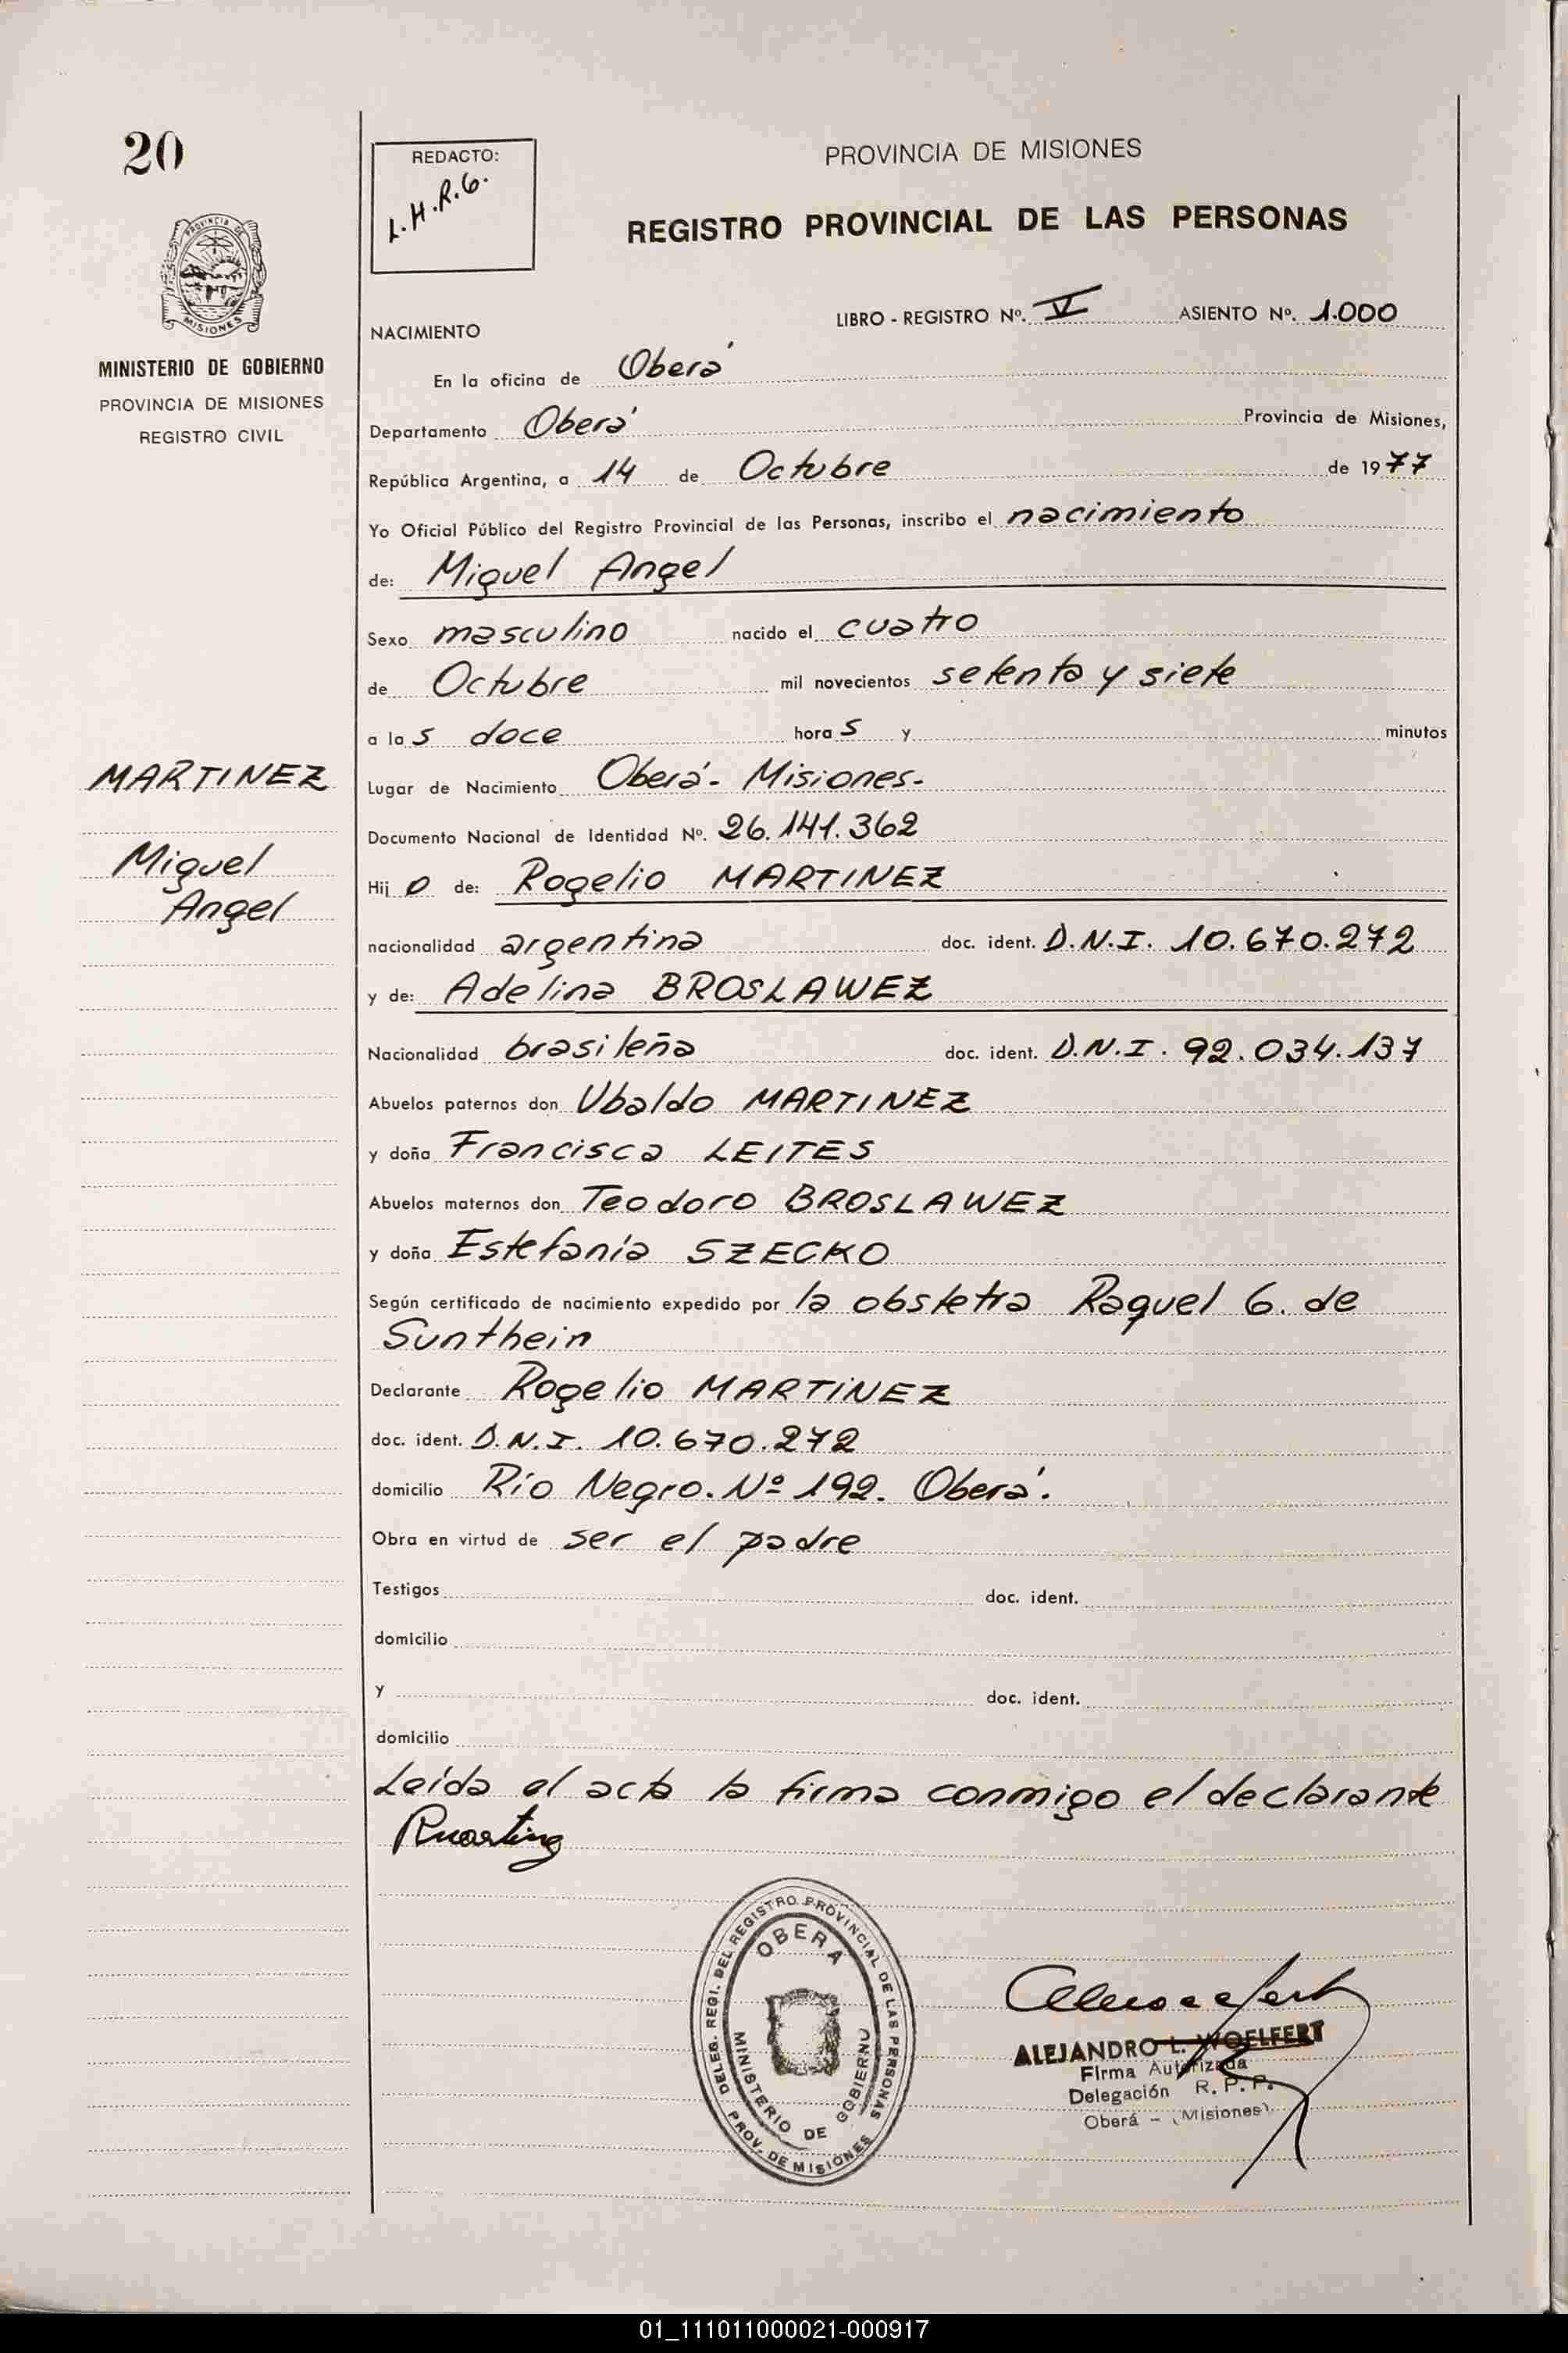 20
REDACTO:
L.H.R.G.
PROVINCIA DE MISIONES
REGISTRO PROVINCIAL DE LAS PERSONAS
PROVINCIA DE
MISIONES
MINISTERIO DE GOBIERNO
PROVINCIA DE MISIONES
REGISTRO CIVIL
LIBRO - REGISTRO Nº. V ASIENTO Nº. 1.000
NACIMIENTO
En la oficina de Oberá
Departamento Oberá Provincia de Misiones,
República Argentina, a 14 de Octubre de 1977
Yo Oficial Público del Registro Provincial de las Personas, inscribo el nacimiento
de: Miguel Angel
Sexo masculino nacido el cuatro
de Octubre mil novecientos setenta y siete
a las doce horas y minutos
MARTINEZ
Miguel
Angel
Lugar de Nacimiento Oberá - Misiones-
Documento Nacional de Identidad Nº. 26.141.362
Hijo de: Rogelio MARTINEZ
nacionalidad argentina doc. ident. D.N.I. 10.670.272
y de: Adelina BROSLAWEZ
Nacionalidad brasileña doc. ident. D.N.I. 92.034.137
Abuelos paternos don Ubaldo MARTINEZ
y doña Francisca LEITES
Abuelos maternos don Teodoro BROSLAWEZ
y doña Estefanía SZECKO
Según certificado de nacimiento expedido por la obstetra Raquel G. de
Sunthein
Declarante Rogelio MARTINEZ
doc. ident. D.N.I. 10.670.272
domicilio Río Negro. Nº 192. Oberá.
Obra en virtud de ser el padre
Testigos doc. ident.
domicilio
y doc. ident.
domicilio
Leída el acta la firma conmigo el declarante
DELEG. REGI. DEL REGISTRO PROVINCIAL DE LAS PERSONAS
OBERA
MINISTERIO DE GOBIERNO
PROV. DE MISIONES
ALEJANDRO L. WOELFERT
Firma Autorizada
Delegación R. P. P.
Oberá - (Misiones)
01_111011000021-000917